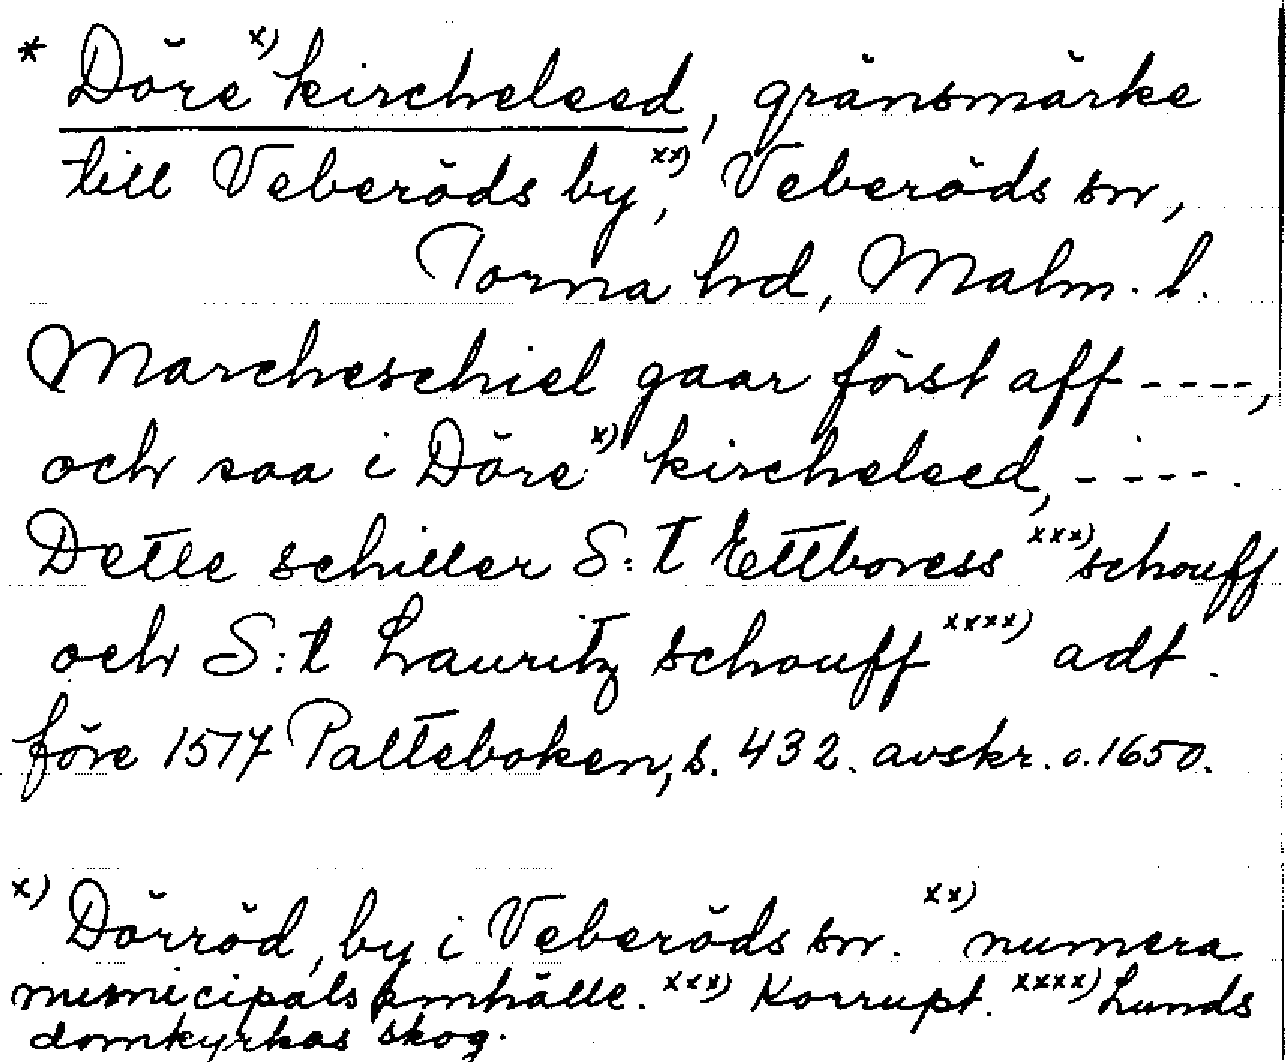 * Döre x) kircheleed, gränsmärke
till Veberöds by, xx) Veberöds sn,
Torna hd, Malm. l.
Marcheschiel gaar först aff ----,
och saa i Döre x) kircheleed, ----.
Dette schiller S:t Ettboress xxx) schouff
och S:t Lauritz schouff xxxx) adt.
före 1517 Palteboken, s. 432. avskr. o. 1650.
x) Dörröd, by i Veberöds sn. xx) numera
municipalsamhälle. xxx) Korrupt. xxxx) Lunds
domkyrkas skog.